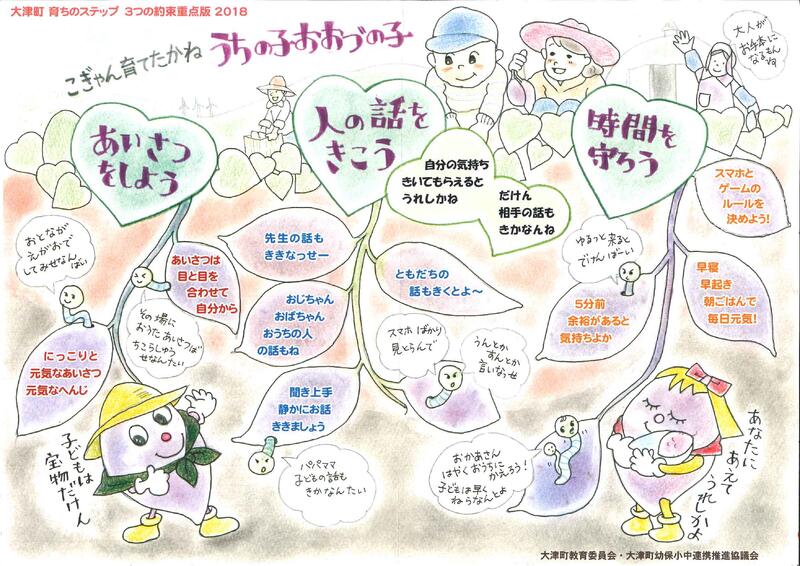 大津町 育ちのステップ 3つの約束重点版 2018
こぎゃん育てたかね うちの子おおづの子
大人が
お手本に
なるもんね
あいさつ
をしよう
人の話を
きこう
時間を
守ろう
自分の気持ち
きいてもらえると
うれしかね
だけん
相手の話も
きかなんね
おとなが
えがおで
してみせなんばい
あいさつは
目と目を
合わせて
自分から
その場に
おうたあいさつば
ちこらしゅう
せなんたい
にっこりと
元気なあいさつ
元気なへんじ
子どもは
宝物だけん
先生の話も
ききなっせー
おじちゃん
おばちゃん
おうちの人
の話もね
ともだちの
話もきくとよ～
スマホばかり
見とらんで
うんとか
すんとか
言いなっせ
聞き上手
静かにお話
ききましょう
パパママ
子どもの話も
きかなんたい
スマホと
ゲームの
ルールを
決めよう!
ゆるっと来ると
でけんばーい
5分前
余裕があると
気持ちよか
早寝
早起き
朝ごはんで
毎日元気!
おかあさん
はやくおうちに
かえろう!
子どもは早く
ねらなんとよ
あなたに
あえて
うれしかよ
大津町教育委員会・大津町幼保小中連携推進協議会